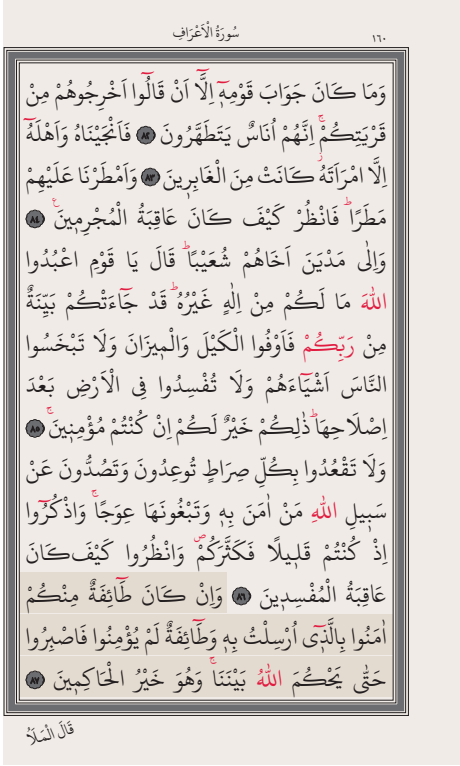 سُورَةُ الْاَعْرَافِ
١٦٠
وَمَا كَانَ جَوَابَ قَوْمِه۪ٓ اِلَّٓا اَنْ قَالُٓوا اَخْرِجُوهُمْ مِنْ
قَرْيَتِكُمْۚ اِنَّهُمْ اُنَاسٌ يَتَطَهَّرُونَ ﴿٨٢﴾ فَاَنْجَيْنَاهُ وَاَهْلَهُٓ
اِلَّا امْرَاَتَهُۘ كَانَتْ مِنَ الْغَابِر۪ينَ ﴿٨٣﴾ وَاَمْطَرْنَا عَلَيْهِمْ
مَطَرًاۜ فَانْظُرْ كَيْفَ كَانَ عَاقِبَةُ الْمُجْرِم۪ينَ۟ ﴿٨٤﴾
وَاِلٰى مَدْيَنَ اَخَاهُمْ شُعَيْبًاۜ قَالَ يَا قَوْمِ اعْبُدُوا
اللّٰهَ مَا لَكُمْ مِنْ اِلٰهٍ غَيْرُهُۜ قَدْ جَٓاءَتْكُمْ بَيِّنَةٌ
مِنْ رَبِّكُمْ فَاَوْفُوا الْكَيْلَ وَالْم۪يزَانَ وَلَا تَبْخَسُوا
النَّاسَ اَشْيَٓاءَهُمْ وَلَا تُفْسِدُوا فِي الْاَرْضِ بَعْدَ
اِصْلَاحِهَاۜ ذٰلِكُمْ خَيْرٌ لَكُمْ اِنْ كُنْتُمْ مُؤْمِن۪ينَۚ ﴿٨٥﴾
وَلَا تَقْعُدُوا بِكُلِّ صِرَاطٍ تُوعِدُونَ وَتَصُدُّونَ عَنْ
سَب۪يلِ اللّٰهِ مَنْ اٰمَنَ بِه۪ وَتَبْغُونَهَا عِوَجًاۚ وَاذْكُرُٓوا
اِذْ كُنْتُمْ قَل۪يلًا فَكَثَّرَكُمْۖ وَانْظُرُوا كَيْفَ كَانَ
عَاقِبَةُ الْمُفْسِد۪ينَ ﴿٨٦﴾ وَاِنْ كَانَ طَٓائِفَةٌ مِنْكُمْ
اٰمَنُوا بِالَّذ۪ٓي اُرْسِلْتُ بِه۪ وَطَٓائِفَةٌ لَمْ يُؤْمِنُوا فَاصْبِرُوا
حَتّٰى يَحْكُمَ اللّٰهُ بَيْنَنَاۚ وَهُوَ خَيْرُ الْحَاكِم۪ينَ ﴿٨٧﴾
قَالَ الْمَلَاُ